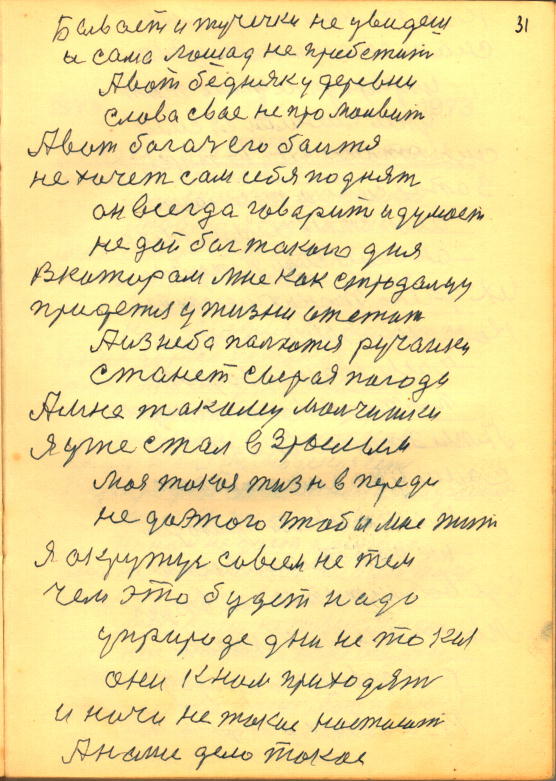 31
Бывает и тучечки не увидеш
и сама лошад не прибежит
Авот бедняку деревни
слова свае не про молвит
Авот богач его боится
не хочет сам себя поднят
он всегда говарит и думает
не дай бог такого дня
В каторам мне как страдалцу
придется у жизни
Аиз неба ручайки
станет сырая погода
Амне такому малчишки
Я уже стал взрослым
моя такая жизн в переди
не доэтого чтобы мне жит
Я окружу совсем не тем
чем это будет надо
уприроде дни не такия
они кнам приходят
и ночи не такие настают
Анаше дело такое